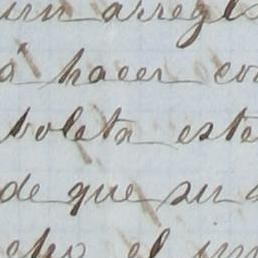 un arregl
á hacer con
boleta este
de que su
el